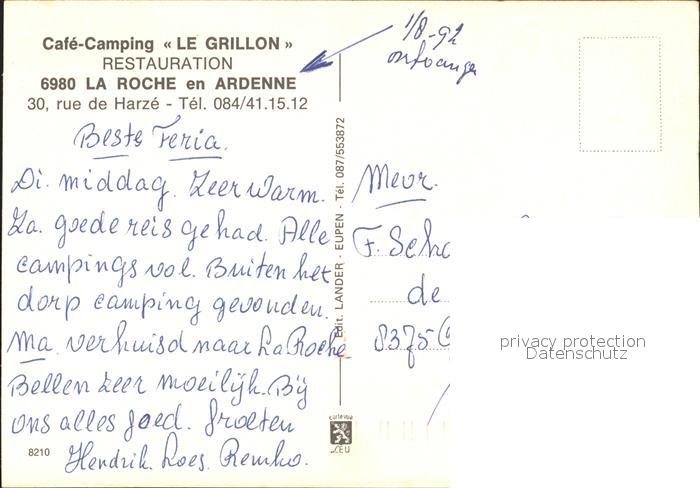 Café-Camping « LE GRILLON »
RESTAURATION
6980 LA ROCHE en ARDENNE
30, rue de Harzé - Tél. 084/41.15.12
1/8-92
ontvangen
Beste Feria.
Di. middag. Zeer warm.
Za. goede reis gehad. Alle
campings vol. Buiten het
dorp camping gevonden.
Ma. verhuisd naar La Roche
Bellen zeer moeilijk. Bij
ons alles goed. Groeten
Hendrik. Loes. Remko.
8210
Edit. LANDER - EUPEN - Tél. 087/553872
carte vue
LEU
Mevr.
F. Scho
de
8375
privacy protection
Datenschutz